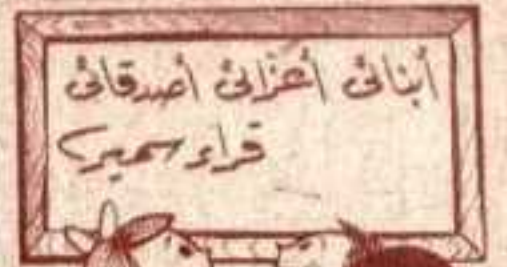 أبنائى أعزائى أصدقائى
قراء سمير